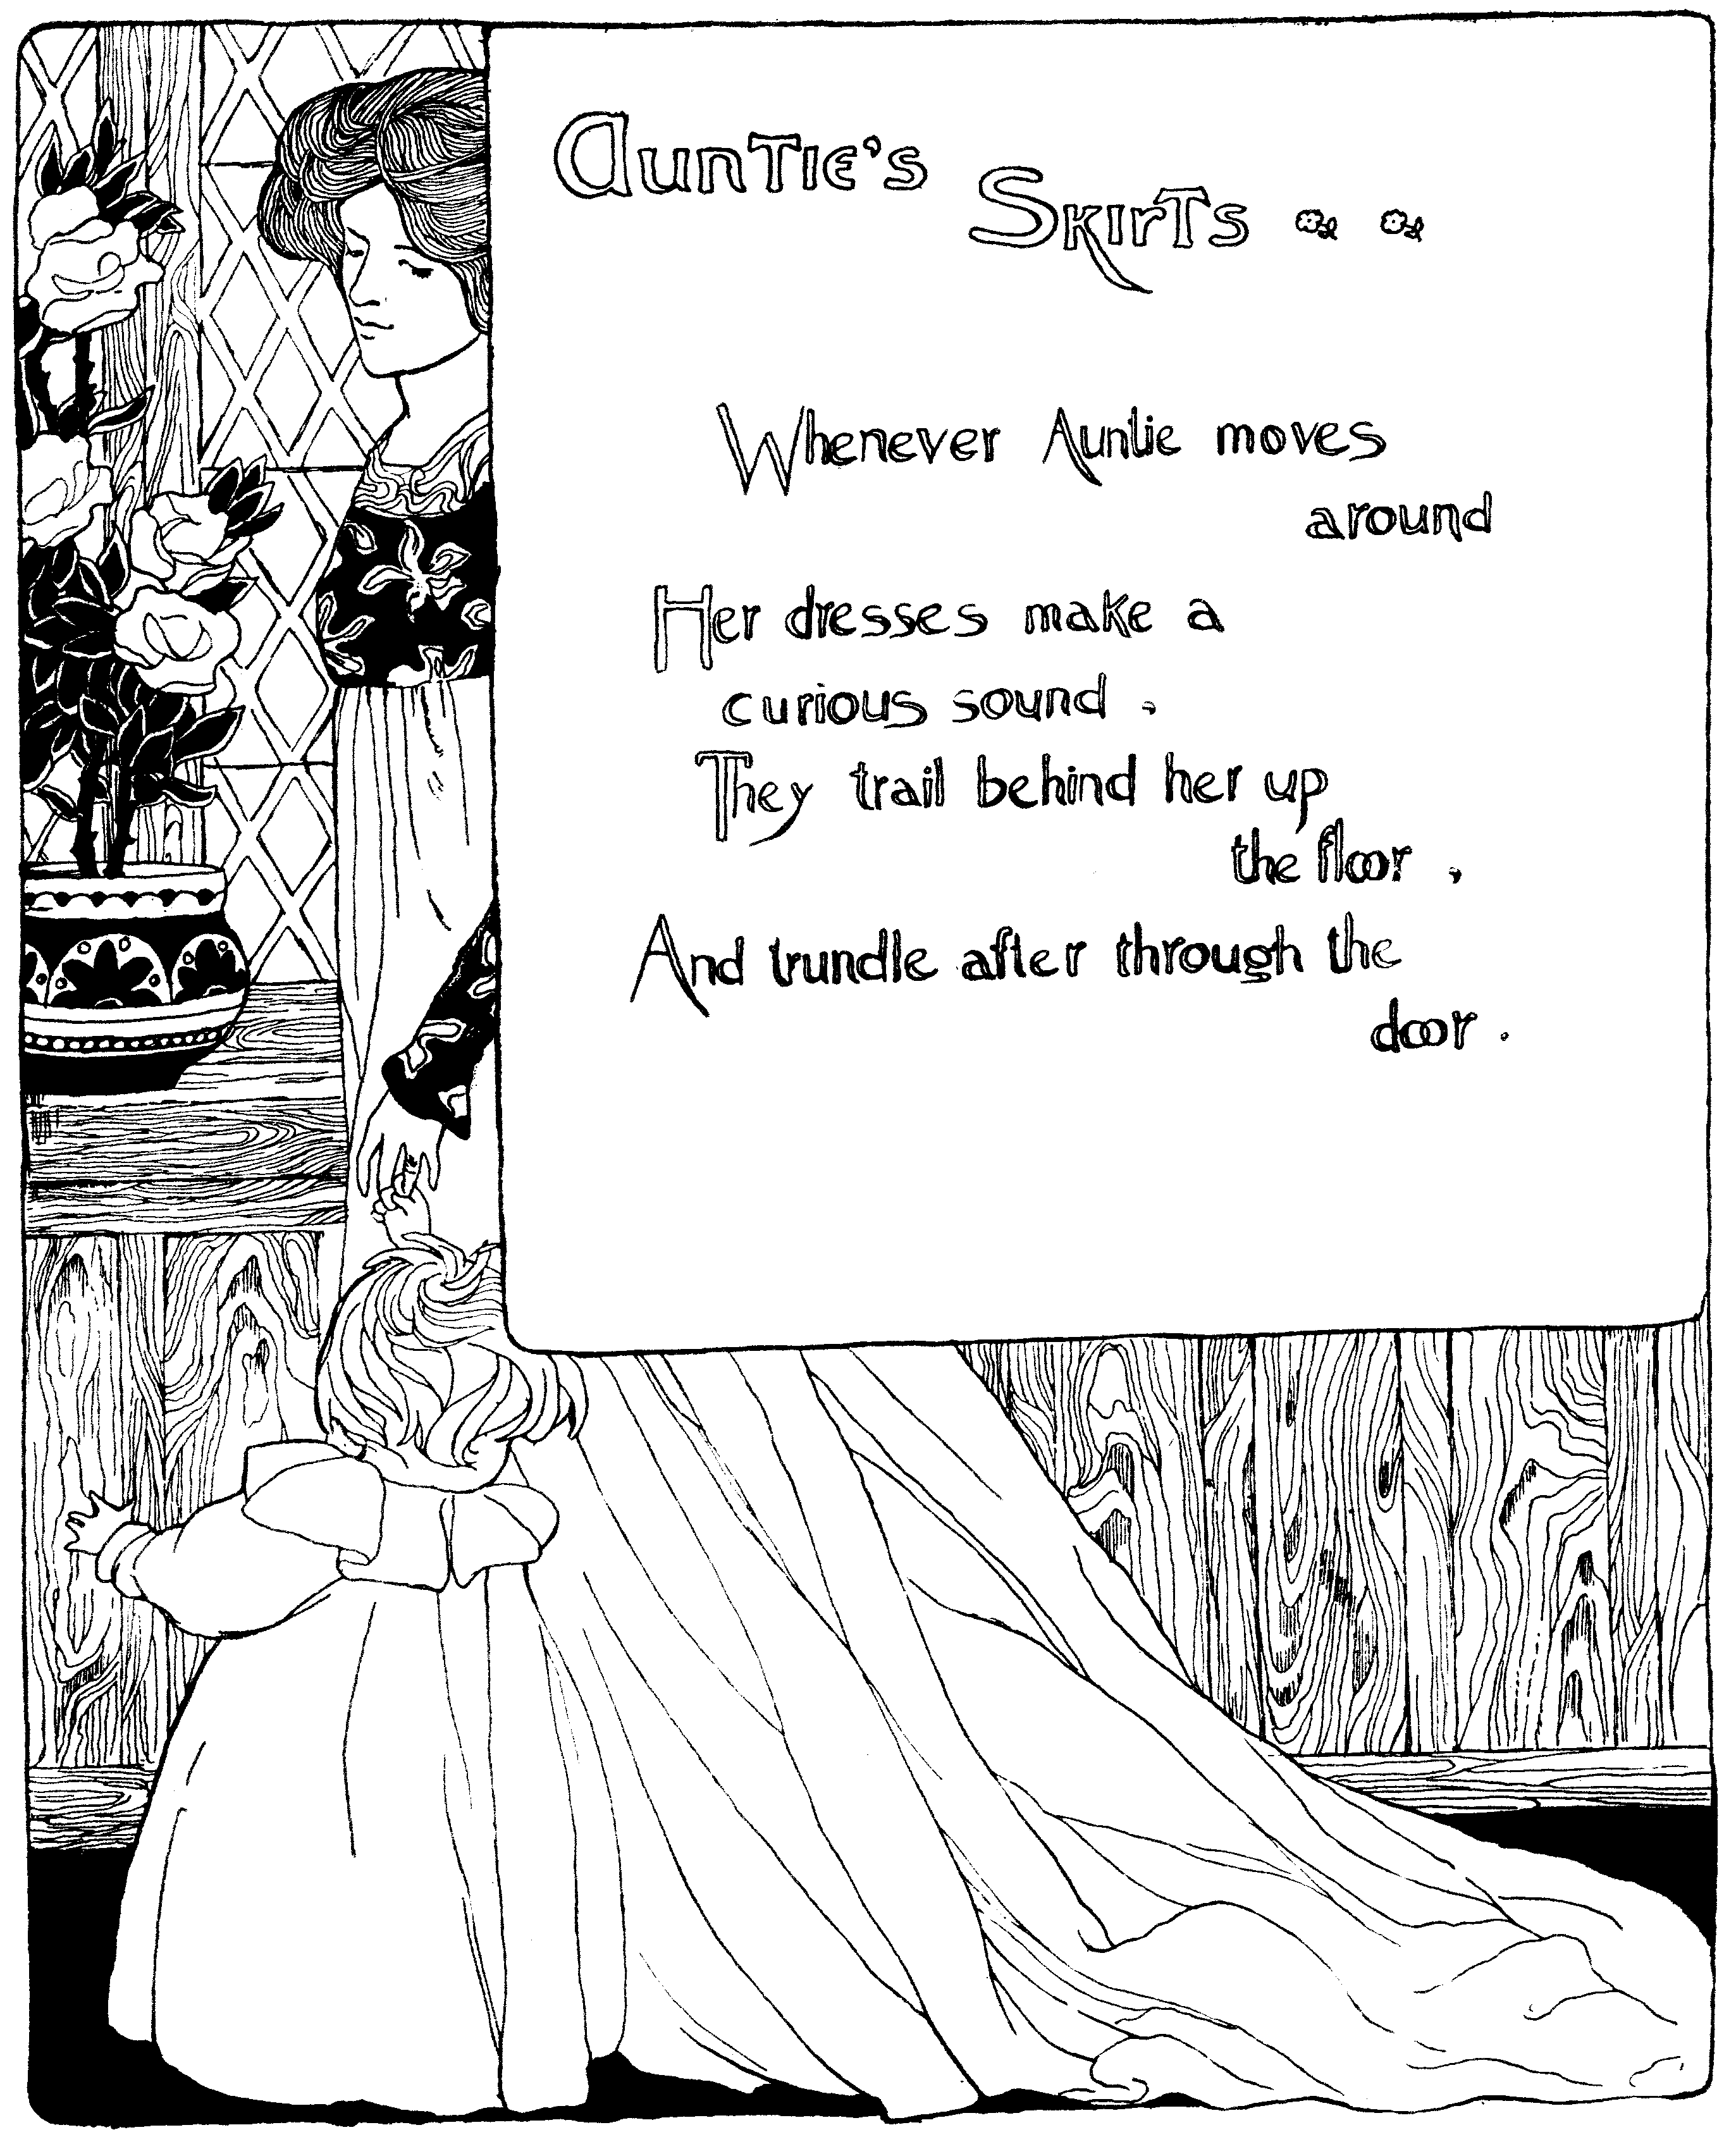 Auntie's
Skirts
Whenever Auntie moves
around
Her dresses make a
curious sound.
They trail behind her up
the floor,
And trundle after through the
door.